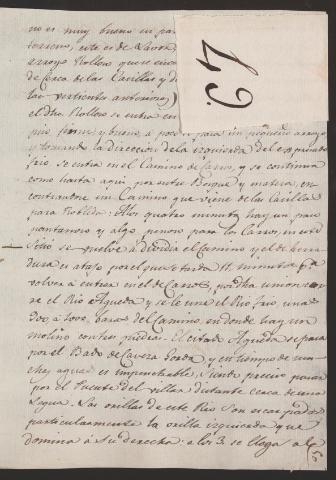 no es muy bueno en pa
terreno, este es de Lavor
arroyo Rollon que se encu
de cerca de las Casillas y d
las vertientes anteriores)
49
el dho. Rollon se entra en
piso firme y bueno, a poco se para un pequeño arroyo
y tomando la direccion de la izquierda del expresado
frio, se entra en el Camino de Carros, y se continua
como hasta aqui por entre Bosque y matas, en
contrandose un Camino que viene de las Casillas
para Robleda: A los quatro minutos hay un paso
pantanoso y algo penoso para los Carros, en este
sitio se vuelve á dividir el Camino, y el de herra
dura es atajo por el que se tarda 11. minutos pa
volver á entrar en el de Carros, por dha. union corre
el Rio Agueda y se le une el Rio frio una
300 a 400. baras del Camino, en donde hay un
molino con tres piedras. El citado Agueda se pasa
por el Bado de Gorda, y en tiempo de mu
chas aguas es impracticable, siendo preciso pasar
por el Puente del Villar, distante cerca de una
Legua. Las orillas de este Rio son escarpadas
particularmente la orilla izquierda que
domina á su derecha: a los 3. se llega a la